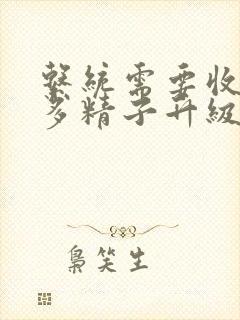 繫統需要收
多精子升級
梟笑生